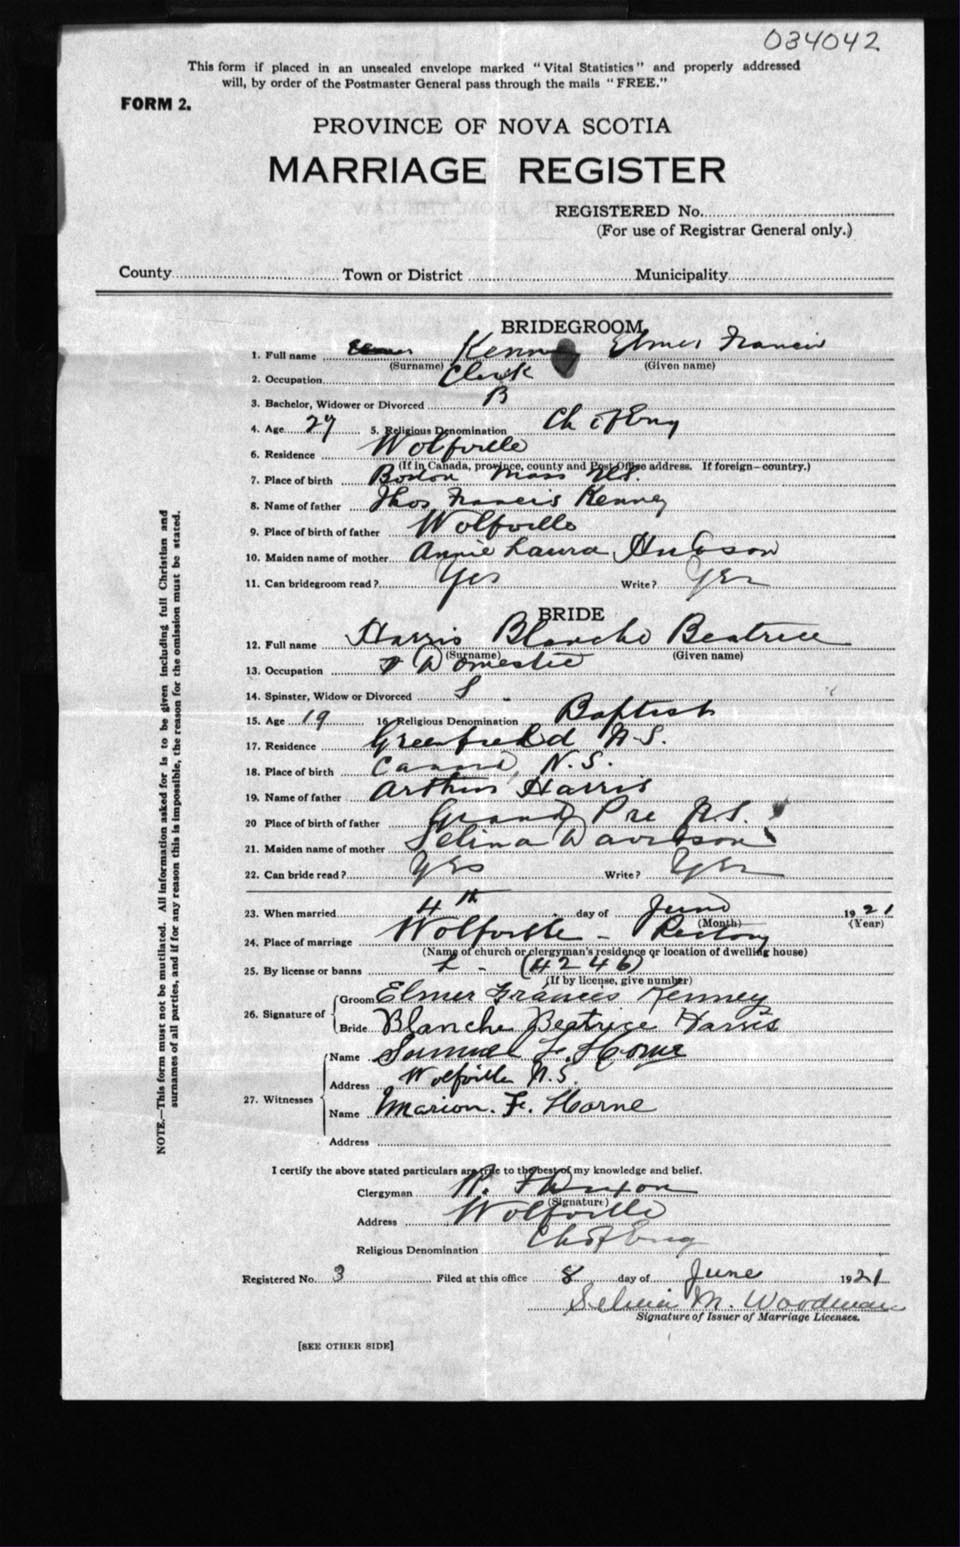 034042
This form if placed in an unsealed envelope marked "Vital Statistics" and properly addressed
will, by order of the Postmaster General pass through the mails "FREE."
FORM 2.
PROVINCE OF NOVA SCOTIA
MARRIAGE REGISTER
REGISTERED No.
(For use of Registrar General only.)
County Town or District Municipality
BRIDEGROOM
1. Full name Kenney Elmer Francis
(Surname) (Given name)
2. Occupation Clerk
3. Bachelor, Widower or Divorced B
4. Age 27 5. Religious Denomination Ch of Eng
6. Residence Wolfville
(If in Canada, province, county and Post Office address. If foreign—country.)
7. Place of birth Boston Mass U.S.
8. Name of father Thos Francis Kenney
9. Place of birth of father Wolfville
10. Maiden name of mother Annie Laura
11. Can bridegroom read? Yes Write? Yes
BRIDE
12. Full name Harris Blanche Beatrice
(Surname) (Given name)
13. Occupation Domestic
14. Spinster, Widow or Divorced S
15. Age 19 16 Religious Denomination Baptist
17. Residence Greenfield N.S.
18. Place of birth N.S.
19. Name of father Arthur Harris
20 Place of birth of father Grand Pre N.S.
21. Maiden name of mother Selina Davidson
22. Can bride read? Yes Write? Yes
23. When married 4th day of June 1921
(Month) (Year)
24. Place of marriage Wolfville - Rectory
(Name of church or clergyman's residence or location of dwelling house)
25. By license or banns L - (4246)
(If by license, give number)
26. Signature of Groom Elmer Francis Kenney
Bride Blanche Beatrice Harris
27. Witnesses Name Samuel F. Horne
Address Wolfville N.S.
Name Marion. F. Horne
Address
I certify the above stated particulars are true to the best of my knowledge and belief.
Clergyman R. F. Dixon
(Signature)
Address Wolfville
Religious Denomination Ch of Eng
Registered No. 3 Filed at this office 8 day of June 1921
M. Woodman
Signature of Issuer of Marriage Licenses.
[SEE OTHER SIDE]
NOTE.—This form must not be mutilated. All information asked for is to be given including full Christian and
surnames of all parties, and if for any reason this is impossible, the reason for the omission must be stated.